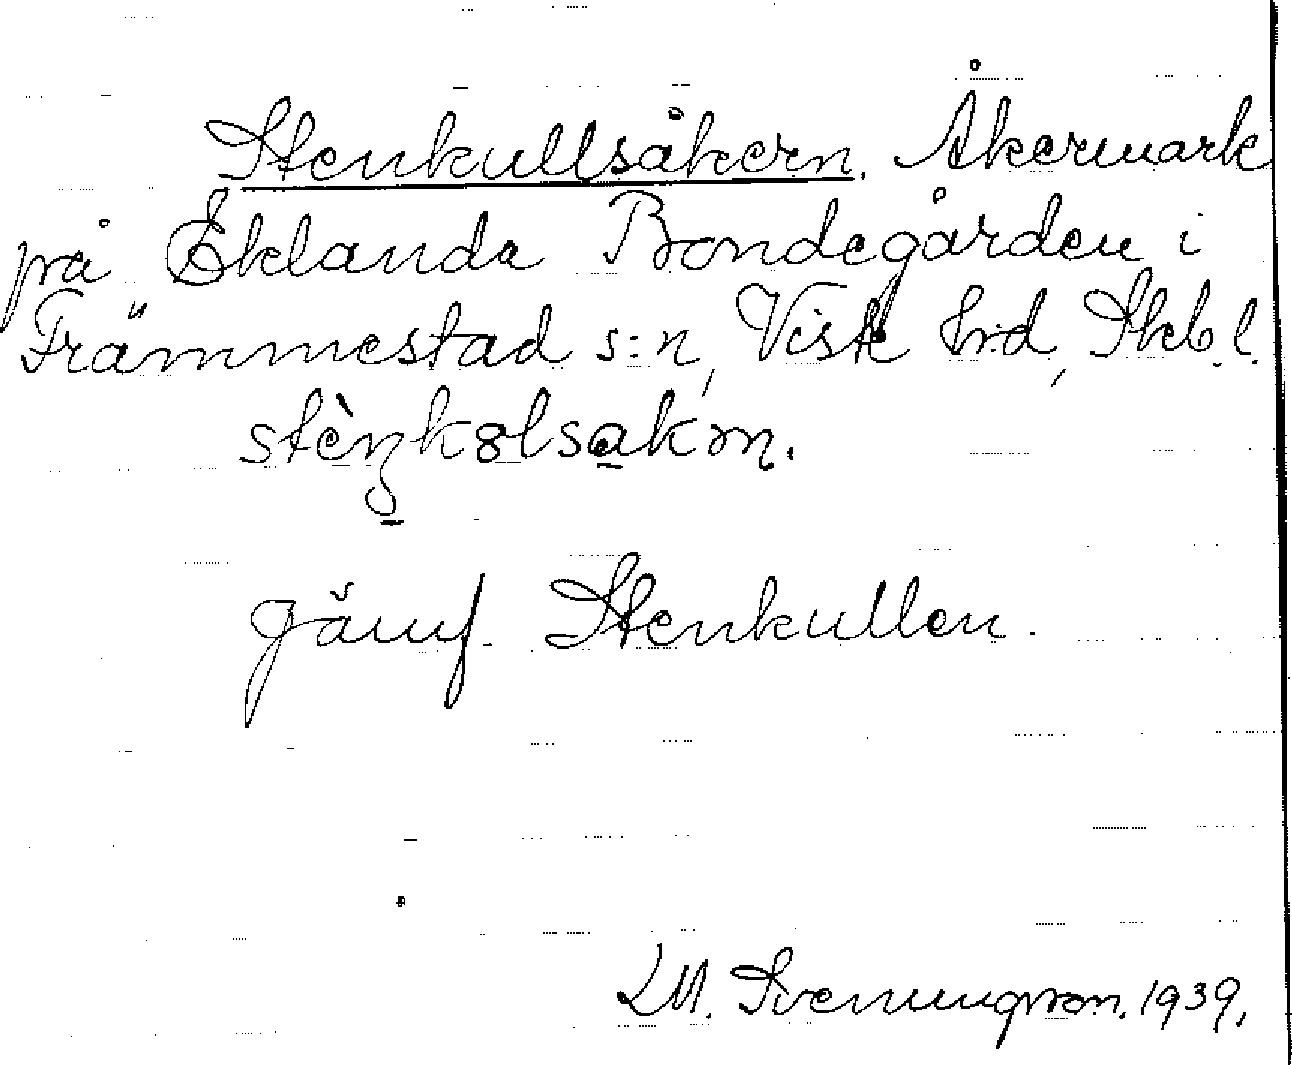 Stenkullsåkern. Åkermark
på Eklanda Bondegården i
Främmestad s:n, Viste hrd, Skb.l.
stènkolsakm.
Jämf. Stenkullen.
LM. Svenungsson. 1939.